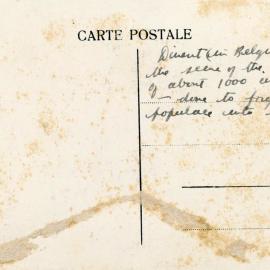 CARTE POSTALE
Dinant (in Belgiu
the scene of the
of about 1000 ci
– done to forc
populace into s